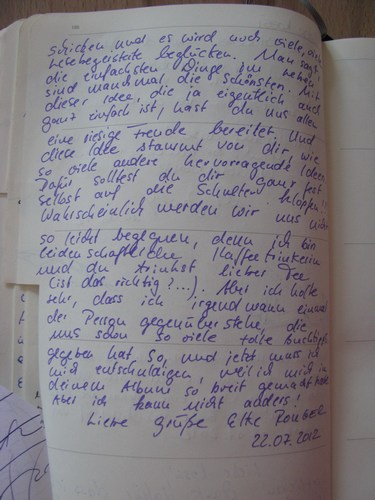 schicken und es wird noch viele, viele
Lesebegeisterte beglücken. Man sagt,
die einfachsten Dinge im Leben
sind manchmal die schönsten. Mit
dieser Idee, die ja eigentlich auch
ganz einfach ist, hast du uns allen
eine riesige Freude bereitet. Und
diese Idee stammt von dir wie
so viele andere hervorragende Ideen
Dafür solltest du dir ganz fest
selbst auf die Schultern klopfen!!!
Wahrscheinlich werden wir uns nicht
so leicht begegnen, denn ich bin
leidenschaftliche Kaffeetrinkerin
und du trinkst lieber Tee
(ist das richtig?...). Aber ich hoffe
sehr, dass ich irgendwann einmal
der Person gegenüber stehe, die
uns schon so viele tolle Buchtipps
gegeben hat. So, und jetzt muss ich
mich entschuldigen, weil ich mich in
deinem Album so breit gemacht habe
Aber ich kann nicht anders!
Liebe Grüße Elke
22.07.2012